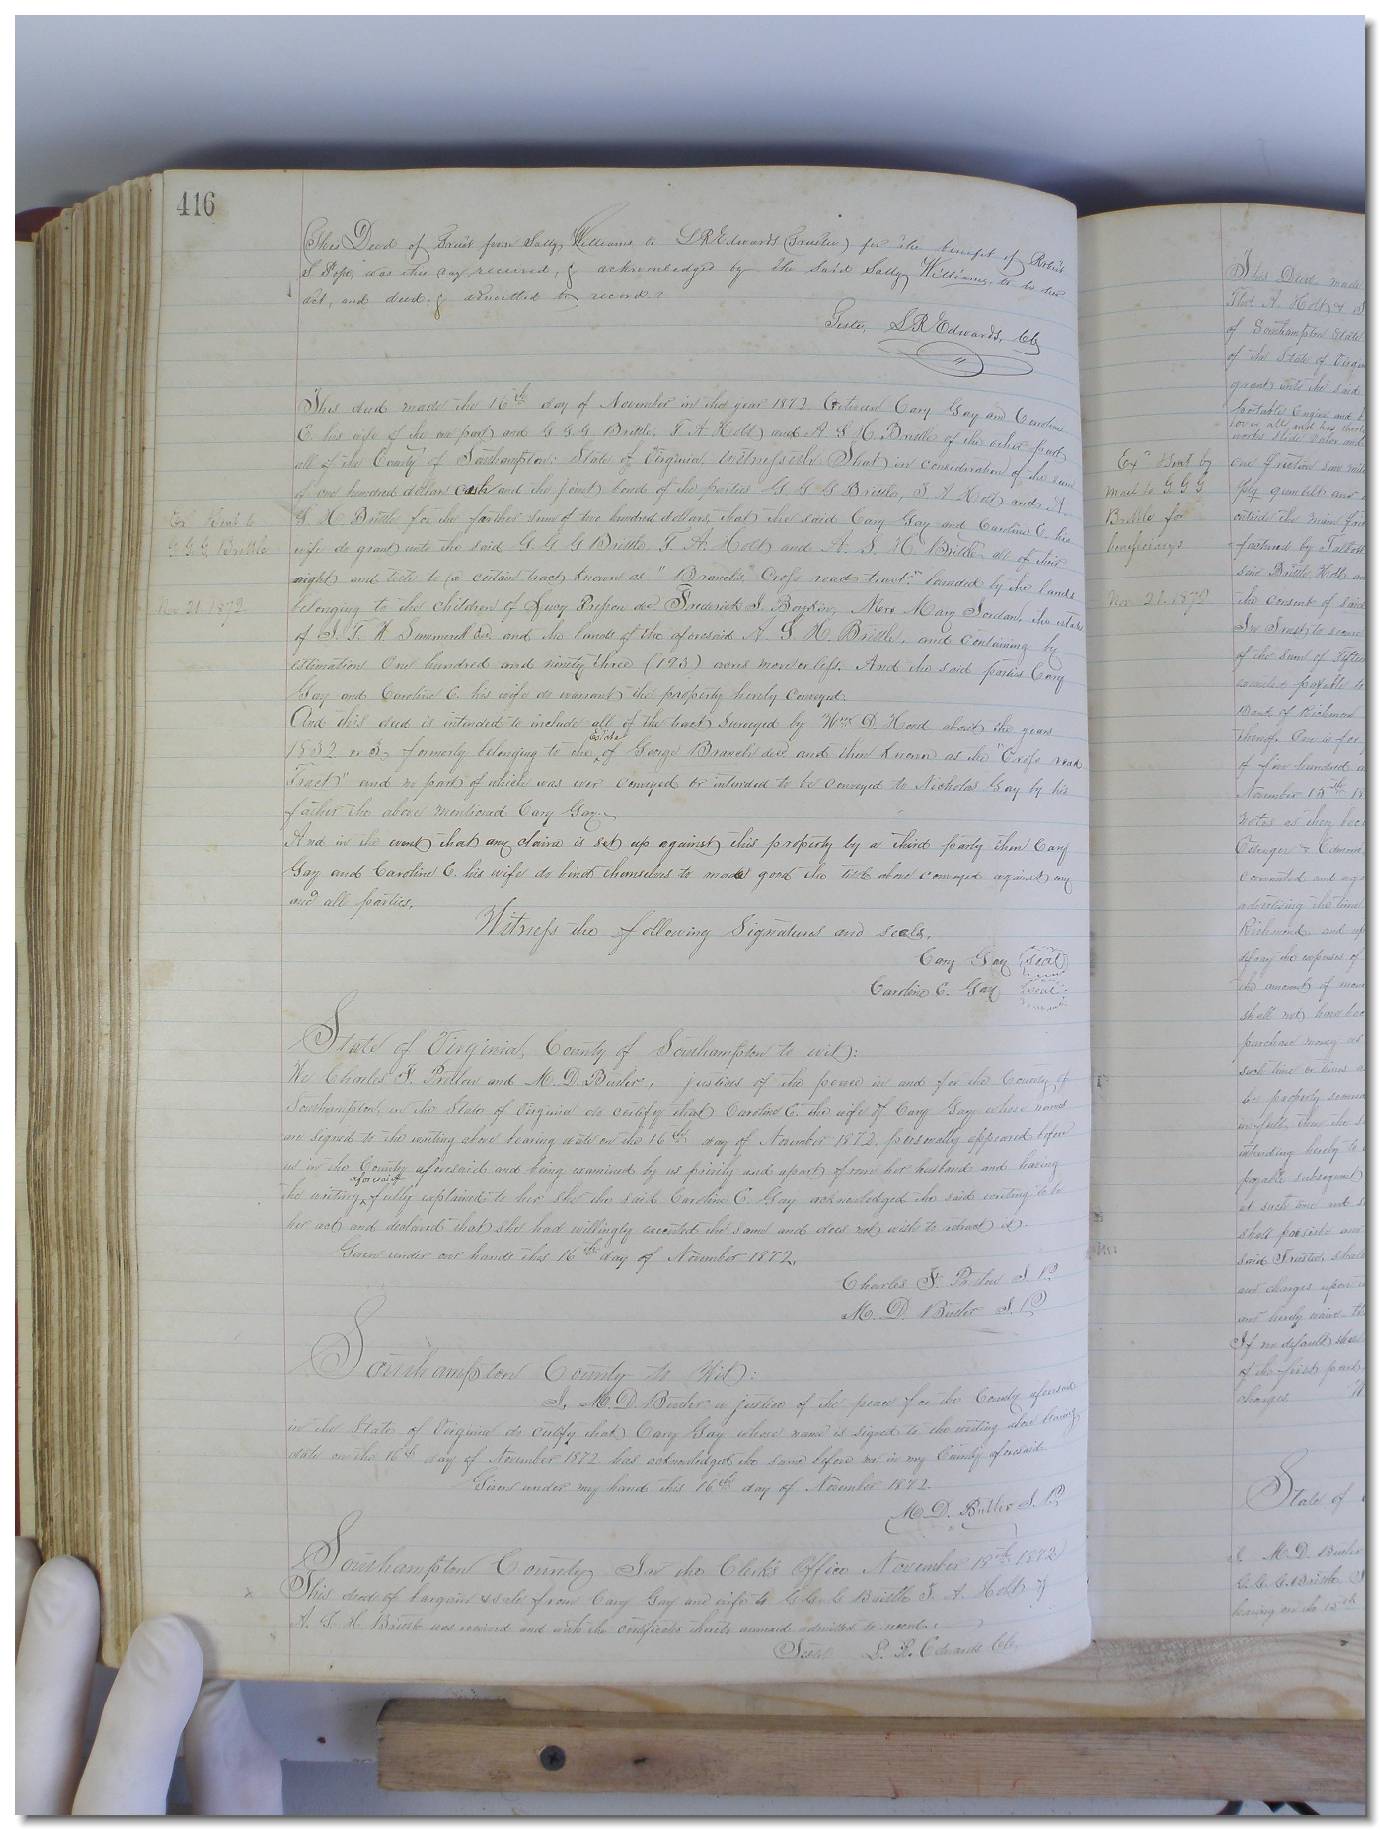 416
This Deed of Trust from Sally Williams to L R Edwards (Trustee) for the benefit of Robert
S Pope, was this day received, & acknowledged by the said Sally Williams, to be her
act, and deed & admitted to record.
Teste, L R Edwards, Clk
This deed made the 16th day of November in the year 1872 Between Cary Gay and Caroline
C. his wife of the one part and G G G Brittle, T A Holt and A S H Brittle of the other part
all of the County of Southampton: State of Virginia Witnesseth That in consideration of the sum
of one hundred dollars cash and the joint bond of the parties G G G Brittle, T A Holt and A.
S H Brittle for the farther sum of two hundred dollars, that the said Cary Gay and Caroline C. his
wife do grant unto the said G G G Brittle T. A. Holt and A. S. H Brittle all of their
right and title to a certain tract known as "Branch's Cross road tract" bounded by the lands
belonging to the children of Lucy Presson decd Frederick J. Boykin, Mrs Mary Jordan, the estate
of S. T. W Summerell decd and the lands of the aforesaid A. S H Brittle, and containing by
estimation One hundred and ninety three (193) acres more or less. And the said parties Cary
Gay and Caroline C. his wife do warrant the property hereby conveyed.
And this deed is intended to include all of the tract surveyed by Wm D. Hood about the years
1852 or 3, formerly belonging to the Estate of George Branch decd and then known as the "Cross road
Tract" and no part of which was ever conveyed or intended to be conveyed to Nicholas Gay by his
father the above mentioned Cary Gay.
And in the event that any claim is set up against this property by a third party then Cary
Gay and Caroline C. his wife do bind themselves to make good the title above conveyed against any
and all parties.
Witness the following Signatures and seals.
Cary Gay Seal
Caroline C. Gay Seal
Ex Sent to
G G G Brittle
Nov 21 1872
State of Virginia, County of Southampton to wit:
We Charles F. Pretlow and M. D. Butler, justices of the peace in and for the County of
Southampton, in the State of Virginia do certify that Caroline C. the wife of Cary Gay whose names
are signed to the writing above bearing date on the 16th day of November 1872, personally appeared before
us in the County aforesaid and being examined by us privily and apart from her husband and having
the writing aforesaid fully explained to her she the said Caroline C. Gay acknowledged the said writing to be
her act and declared that she had willingly executed the same and does not wish to retract it.
Given under our hands this 16th day of November 1872.
Charles F. Pretlow J. P.
M. D. Butler J. P.
Southampton County to Wit:
I, M. D. Butler a justice of the peace for the County aforesaid
in the State of Virginia do certify that Cary Gay whose name is signed to the writing above bearing
date on the 16th day of November 1872 has acknowledged the same before me in my County aforesaid.
Given under my hand this 16th day of November 1872.
M. D. Butler J. P.
Southampton County In the Clerk's Office November 18th 1872
This deed of bargain & sale from Cary Gay and wife to G G G Brittle T. A. Holt &
A. S. H. Brittle was received and with the certificates thereto annexed admitted to record.
Teste L. R. Edwards Clk.
Exd Sent by
mail to G G G
Brittle for
beneficiarys
Nov 21. 1872
This Deed made
of Southampton State
of the State of Virgin
grant unto the said
Portable Engine and
one friction saw mill
outside the main
said Brittle Holt an
the consent of said
In Trust, to secure
of the sum of fifteen
payable to
Bank of Richmond
thereof. One is for
of five hundred
November 15th 18
notes as they bec
advertising the time
Richmond and up
defray the expenses of
the amount of mon
shall not have bec
purchase money as
such time or times a
intending hereby to
payable subsequent
at such time not s
said Trustee, shall
are hereby waive th
If no default shall
of the first part
charges. W
State of
I M. D. Butler
G. G. G. Brittle
bearing on the 15th